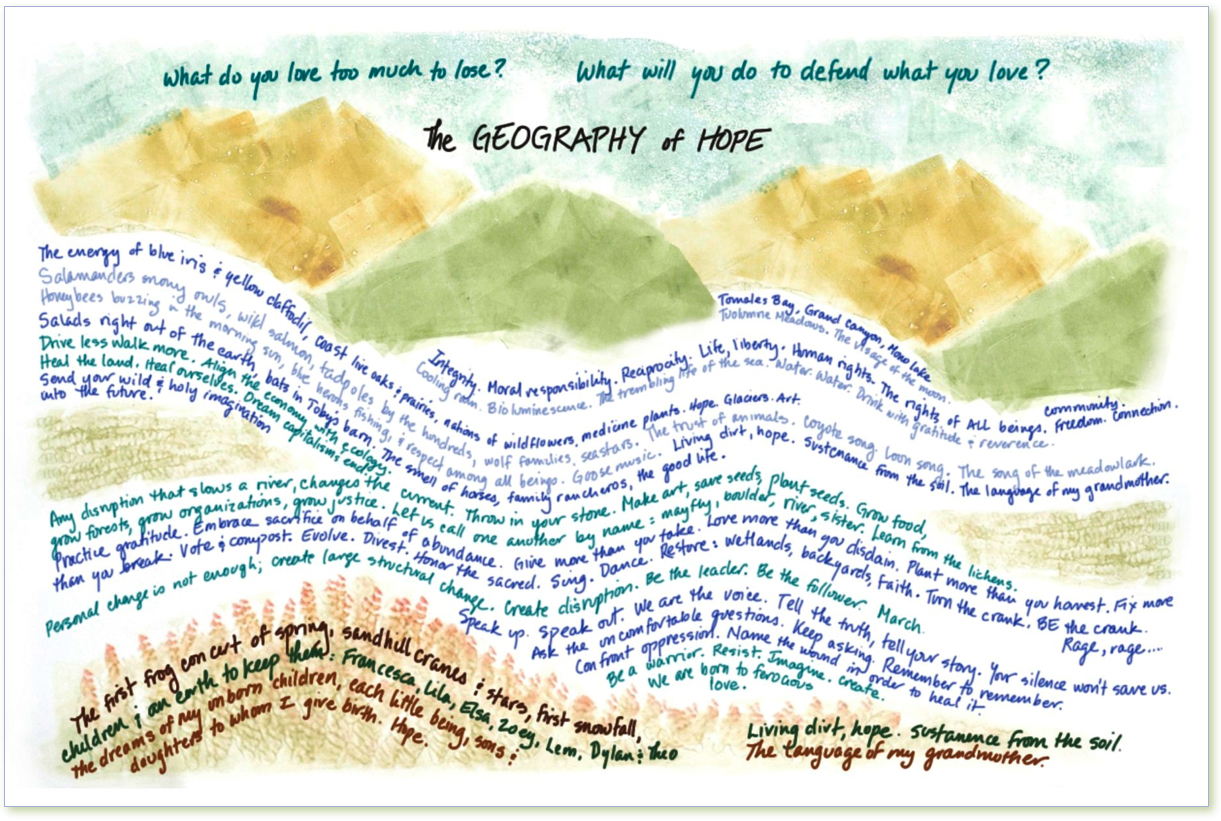 What do you love too much to lose?
What will you do to defend what you love?
The GEOGRAPHY of HOPE
The energy of blue iris & yellow daffodil, coast live oaks & prairies, nations of wildflowers, medicine plants. Hope. Glaciers. Art.
Salamanders snowy owls, wild salmon, tadpoles by the hundreds, wolf families, seastars. The trust of animals. Coyote song. Loon song. The song of the meadowlark.
Honeybees buzzing in the morning sun, blue herons fishing, & respect among all beings. Goose music. Living dirt, hope. Sustenance from the soil. The language of my grandmother.
Salads right out of the earth, bats in Tobys barn. The smell of horses, family rancheros, the good life.
Drive less walk more. Align the economy with ecology.
Heal the land. Heal ourselves. Dream capitalisms end.
Send your wild & holy imagination
into the future.
Integrity. Moral responsibility. Reciprocity. Life, liberty. Human rights. The rights of ALL beings. Freedom. Connection.
community.
Cooling rain. Bioluminescence. The trembling life of the sea. Water. Water. Drink with gratitude & reverence.
Tomales Bay, Grand Canyon, Mono lake
Tuolumne Meadows. The visage of the moon.
Any disruption that slows a river, changes the current. Throw in your stone. Make art, save seeds, plant seeds. Grow food,
grow forests, grow organizations, grow justice. Let us call one another by name: mayfly, boulder, river, sister. Learn from the lichens.
Practice gratitude. Embrace sacrifice on behalf of abundance. Give more than you take. Love more than you disdain. Plant more than you harvest. Fix more
than you break. Vote & compost. Evolve. Divest. Honor the sacred. Sing. Dance. Restore: wetlands, backyards, faith. Turn the crank. BE the crank.
Rage, rage....
Personal change is not enough; create large structural change. Create disruption. Be the leader. Be the follower. March.
Speak up. Speak out. We are the voice. Tell the truth, tell your story. Your silence won't save us.
Ask the uncomfortable questions. Keep asking. Remember to remember.
Confront oppression. Name the wound in order to heal it.
Be a warrior. Resist. Imagine. Create.
We are born to ferocious
love.
The first frog concert of spring, sandhill cranes & stars, first snowfall,
children & an earth to keep them: Francesca, Lila, Elsa, Zoey, Lem, Dylan & Theo
the dreams of my unborn children, each little being, sons &
daughters to whom I give birth. Hope.
Living dirt, hope. Sustanence from the soil.
The language of my grandmother.